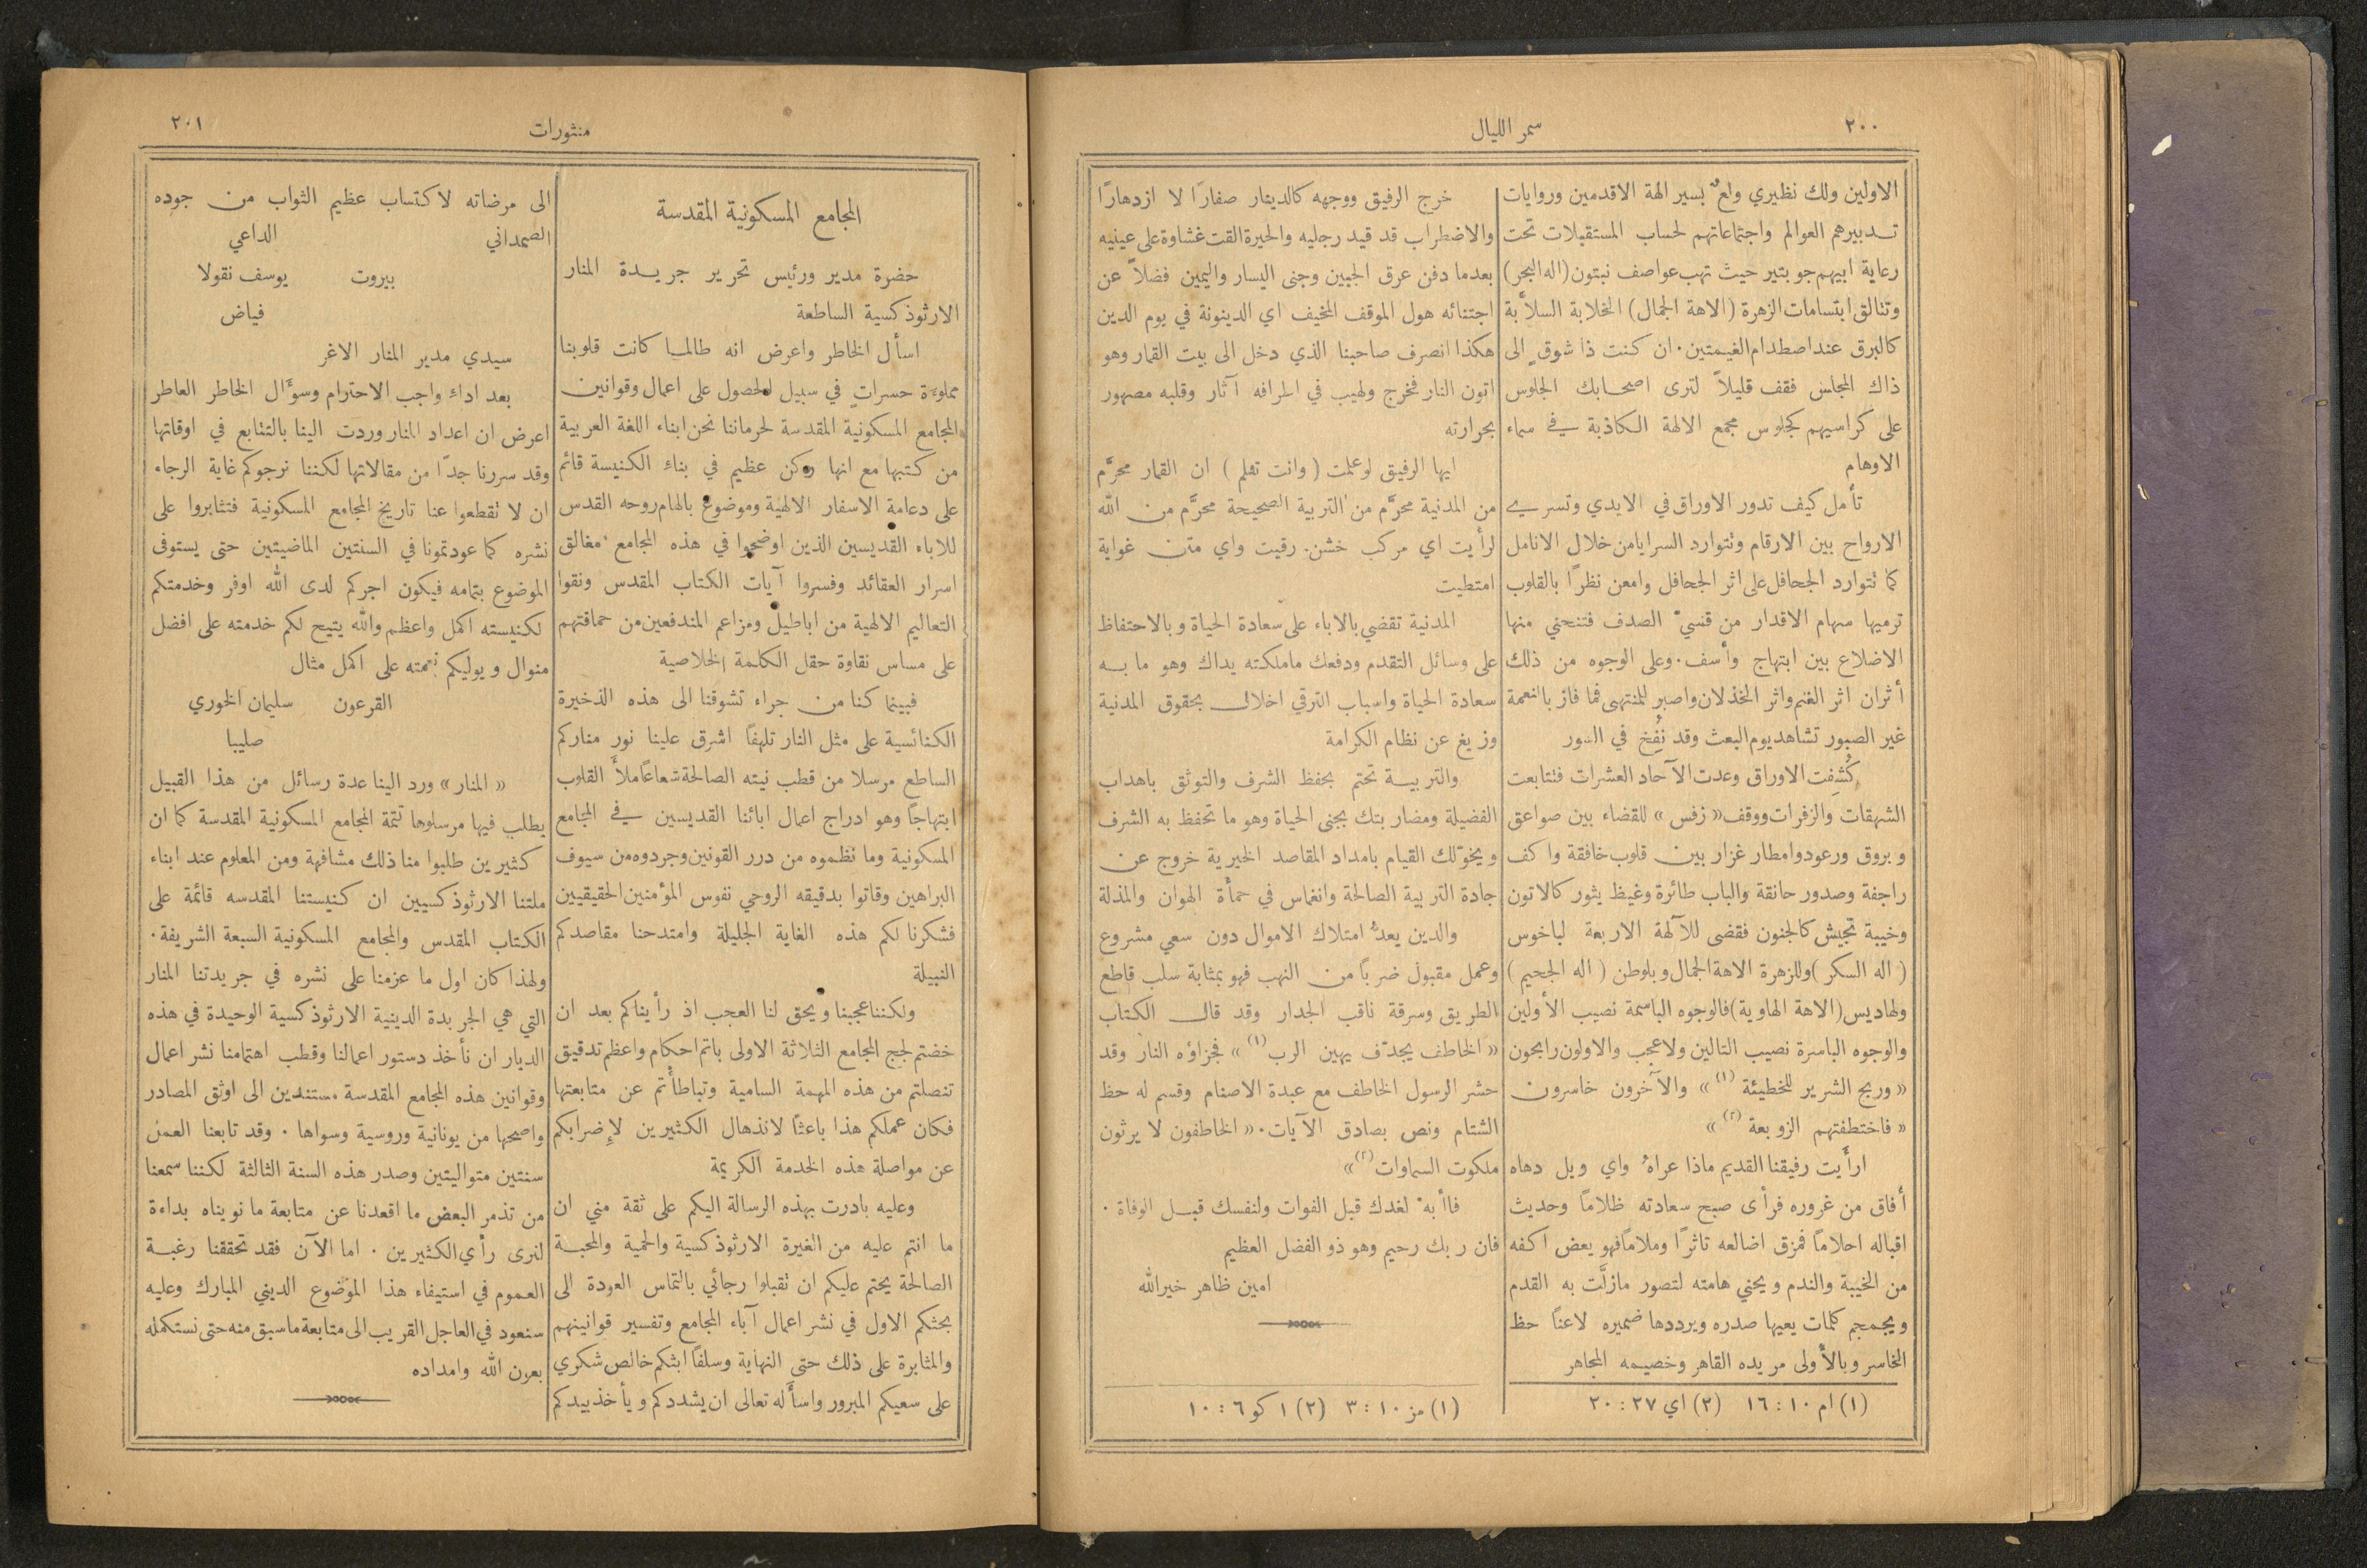 ٢٠٠
سمر الليال
الاولين ولك نظيري ولعٌ بسير الهة الاقدمين وروايات
تدبيرهم العوالم واجتماعاتهم لحساب المستقبلات تحت
رعاية ابيهم جوبتير حيث تهب عواصف نبتون (اله البحر)
وتتالق ابتسامات الزهرة (الاهة الجمال) الخلابة السلاَّبة
كالبرق عند اصطدام الغيمتين. ان كنت ذا شوقٍ الى
ذاك المجلس فقف قليلاً لترى اصحابك الجلوس
على كراسيهم كجلوس مجمع الالهة الكاذبة في سماء
الاوهام
تأمل كيف تدور الاوراق في الايدي وتسري
الارواح بين الارقام وتتوارد السرايا من خلال الانامل
كما تتوارد الجحافل على اثر الجحافل وامعن نظرًا بالقلوب
ترميها سهام الاقدار من قسيّ الصدف فتنحني منها
الاضلاع بين ابتهاج وأسف. وعلى الوجوه من ذلك
أثران اثر الغنم واثر الخذلان واصبر للمنتهى فما فاز بالنعمة
غير الصبور تشاهد يوم البعث وقد نُفِخ في الصور
كُشِفت الاوراق وعدت الآحاد العشرات فتتابعت
الشهقات والزفرات ووقف «زفس» للقضاء بين صواعق
وبروق ورعود وامطار غزار بين قلوب خافقة واكف
راجفة وصدور حانقة والباب طائرة وغيظ يثور كالاتون
وخيبة تجيش كالجنون فقضى للآلهة الاربعة لباخوس
( اله السكر ) وللزهرة الاهة الجمال وبلوطن ( اله الجحيم )
ولهاديس (الاهة الهاوية) فالوجوه الباسمة نصيب الأولين
والوجوه الباسرة نصيب التالين ولا عجب والاولون رابحون
« وربح الشرير للخطيئة (١) » والآخرون خاسرون
« فاختطفتهم الزوبعة (٢) »
ارأيت رفيقنا القديم ماذا عراهُ واي ويل دهاه
أفاق من غروره فرأى صبح سعادته ظلامًا وحديث
اقباله احلامًا فمزق اضالعه تاثرًا وملامًا فهو يعض اكفه
من الخيبة والندم ويحني هامته لتصور مازلَّت به القدم
ويجمجم كلمات يعيها صدره ويرددها ضميره لاعنًا حظ
الخاسر وبالأولى مريده القاهر وخصيمه المجاهر
(١) ام ١٠ : ١٦ (٢) اي ٢٧ : ٢٠
خرج الرفيق ووجهه كالدينار صفارًا لا ازدهارًا
والاضطراب قد قيد رجليه والحيرة القت غشاوة على عينيه
بعدما دفن عرق الجبين وجنى اليسار واليمين فضلاً عن
اجتنائه هول الموقف المخيف اي الدينونة في يوم الدين
هكذا انصرف صاحبنا الذي دخل الى بيت القمار وهو
اتون النار فخرج ولهيب في اطرافه آثار وقلبه مصهور
بحرارته
ايها الرفيق لو علمت ( وانت تعلم ) ان القمار محرَّم
من المدنية محرَّم من التربية الصحيحة محرَّم من الله
لرأيت اي مركب خشن رقيت واي متن غواية
امتطيت
المدنية تقضي بالاباء على سعادة الحياة وبالاحتفاظ
على وسائل التقدم ودفعك ماملكته يداك وهو ما به
سعادة الحياة واسباب الترقي اخلال بحقوق المدنية
وزيغ عن نظام الكرامة
والتربية تحتم بحفظ الشرف والتوثق باهداب
الفضيلة ومضاربتك بجنى الحياة وهو ما تحفظ به الشرف
ويخوّلك القيام بامداد المقاصد الخيرية خروج عن
جادة التربية الصالحة وانغماس في حمأة الهوان والمذلة
والدين يعدُّ امتلاك الاموال دون سعي مشروع
وعمل مقبول ضربًا من النهب فهو بمثابة سلب قاطع
الطريق وسرقة ناقب الجدار وقد قال الكتاب
« الخاطف يجدّف يهين الرب (١) » فجزاؤه النار وقد
حشر الرسول الخاطف مع عبدة الاصنام وقسم له حظ
الشتام ونص بصادق الآيات. « الخاطفون لا يرثون
ملكوت السماوات (٢) »
فاأبهْ لغدك قبل الفوات ولنفسك قبل الوفاة .
فان ربك رحيم وهو ذو الفضل العظيم
امين ظاهر خيرالله
(١) مز ١٠ : ٣ (٢) ١ كو ٦ : ١٠
منثورات
٢٠١
المجامع المسكونية المقدسة
حضرة مدير ورئيس تحرير جريدة المنار
الارثوذكسية الساطعة
اسأل الخاطر واعرض انه طالما كانت قلوبنا
مملوءة حسراتٍ في سبيل لحصول على اعمال وقوانين
المجامع المسكونية المقدسة لحرماننا نحن ابناء اللغة العربية
من كتبها مع انها ركن عظيم في بناء الكنيسة قائم
على دعامة الاسفار الالهية وموضوع بالهام روحه القدس
للاباء القديسين الذين اوضحوا في هذه المجامع مغالق
اسرار العقائد وفسروا آيات الكتاب المقدس ونقوا
التعاليم الالهية من اباطيل ومزاعم المندفعين من حماقتهم
على مساس نقاوة حقل الكلمة الخلاصية
فبينما كنا من جراء تشوقنا الى هذه الذخيرة
الكنائسية على مثل النار تلهفًا اشرق علينا نور مناركم
الساطع مرسلا من قطب نيته الصالحة شعاعًا ملأَ القلوب
ابتهاجًا وهو ادراج اعمال ابائنا القديسين في المجامع
المسكونية وما نظموه من درر القونين وجردوه من سيوف
البراهين وقاتوا بدقيقه الروحي نفوس المؤمنين الحقيقيين
فشكرنا لكم هذه الغاية الجليلة وامتدحنا مقاصدكم
النبيلة
ولكننا عجبنا ويحق لنا العجب اذ رأيناكم بعد ان
خضتم لجج المجامع الثلاثة الاولى باتم احكام واعظم تدقيق
تنصلتم من هذه المهمة السامية وتباطأتم عن متابعتها
فكان عملكم هذا باعثًا لانذهال الكثيرين لإضرابكم
عن مواصلة هذه الخدمة الكريمة
وعليه بادرت بهذه الرسالة اليكم على ثقة مني ان
ما انتم عليه من الغيرة الارثوذكسية والحمية والمحبة
الصالحة يحتم عليكم ان تقبلوا رجائي بالتماس العودة الى
بحثكم الاول في نشر اعمال آباء المجامع وتفسير قوانينهم
والمثابرة على ذلك حتى النهاية وسلفًا ابثكم خالص شكري
على سعيكم المبرور واسأَله تعالى ان يشددكم ويأخذ بيدكم
الى مرضاته لاكتساب عظيم الثواب من جوده
الصمداني الداعي
بيروت يوسف نقولا
فياض
سيدي مدير المنار الاغر
بعد اداء واجب الاحترام وسؤَال الخاطر العاطر
اعرض ان اعداد المنار وردت الينا بالتتابع في اوقاتها
وقد سررنا جدًا من مقالاتها لكننا نرجوكم غاية الرجاء
ان لا تقطعوا عنا تاريخ المجامع المسكونية فتثابروا على
نشره كما عودتمونا في السنتين الماضيتين حتى يستوفى
الموضوع بتمامه فيكون اجركم لدى الله اوفر وخدمتكم
لكنيسته اكمل واعظم والله يتيح لكم خدمته على افضل
منوال ويوليكم نعمته على اكمل مثال
القرعون سليمان الخوري
صليبا
« المنار » ورد الينا عدة رسائل من هذا القبيل
يطلب فيها مرسلوها تتمة المجامع المسكونية المقدسة كما ان
كثيرين طلبوا منا ذلك مشافهة ومن المعلوم عند ابناء
ملتنا الارثوذكسيين ان كنيستنا المقدسه قائمة على
الكتاب المقدس والمجامع المسكونية السبعة الشريفة.
ولهذا كان اول ما عزمنا على نشره في جريدتنا المنار
التي هي الجريدة الدينية الارثوذكسية الوحيدة في هذه
الديار ان نأخذ دستور اعمالنا وقطب اهتمامنا نشر اعمال
وقوانين هذه المجامع المقدسة مستندين الى اوثق المصادر
واصحها من يونانية وروسية وسواها . وقد تابعنا العمل
سنتين متواليتين وصدر هذه السنة الثالثة لكننا سمعنا
من تذمر البعض ما اقعدنا عن متابعة ما نويناه بداءة
لنرى رأي الكثيرين . اما الآن فقد تحققنا رغبة
العموم في استيفاء هذا الموضوع الديني المبارك وعليه
سنعود في العاجل القريب الى متابعة ماسبق منه حتى نستكمله
بعون الله وامداده